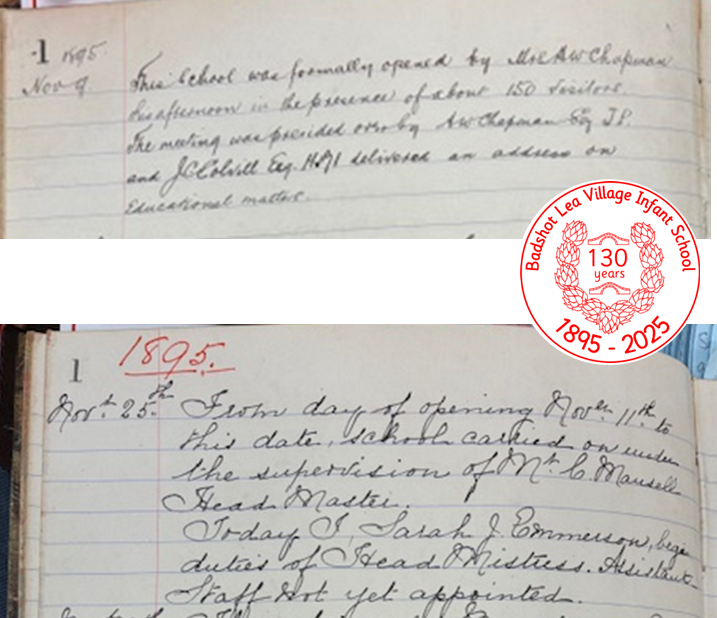 1 1895
Nov 9 This School was formally opened by Mrs A W Chapman
this afternoon in the presence of about 150 visitors.
The meeting was presided over by A W Chapman Esq J.P.
and J C Colvill Esq delivered an address on
Educational matters.
Badshot Lea Village Infant School
130
years
1895 - 2025
1 1895.
Novr 25th From day of opening Novber 11th to
this date, school carried on under
the supervision of Mr C. Mansell
Head Master.
Today I, Sarah J. Emmerson, began
duties of Head Mistress. Assistant
Staff not yet appointed.